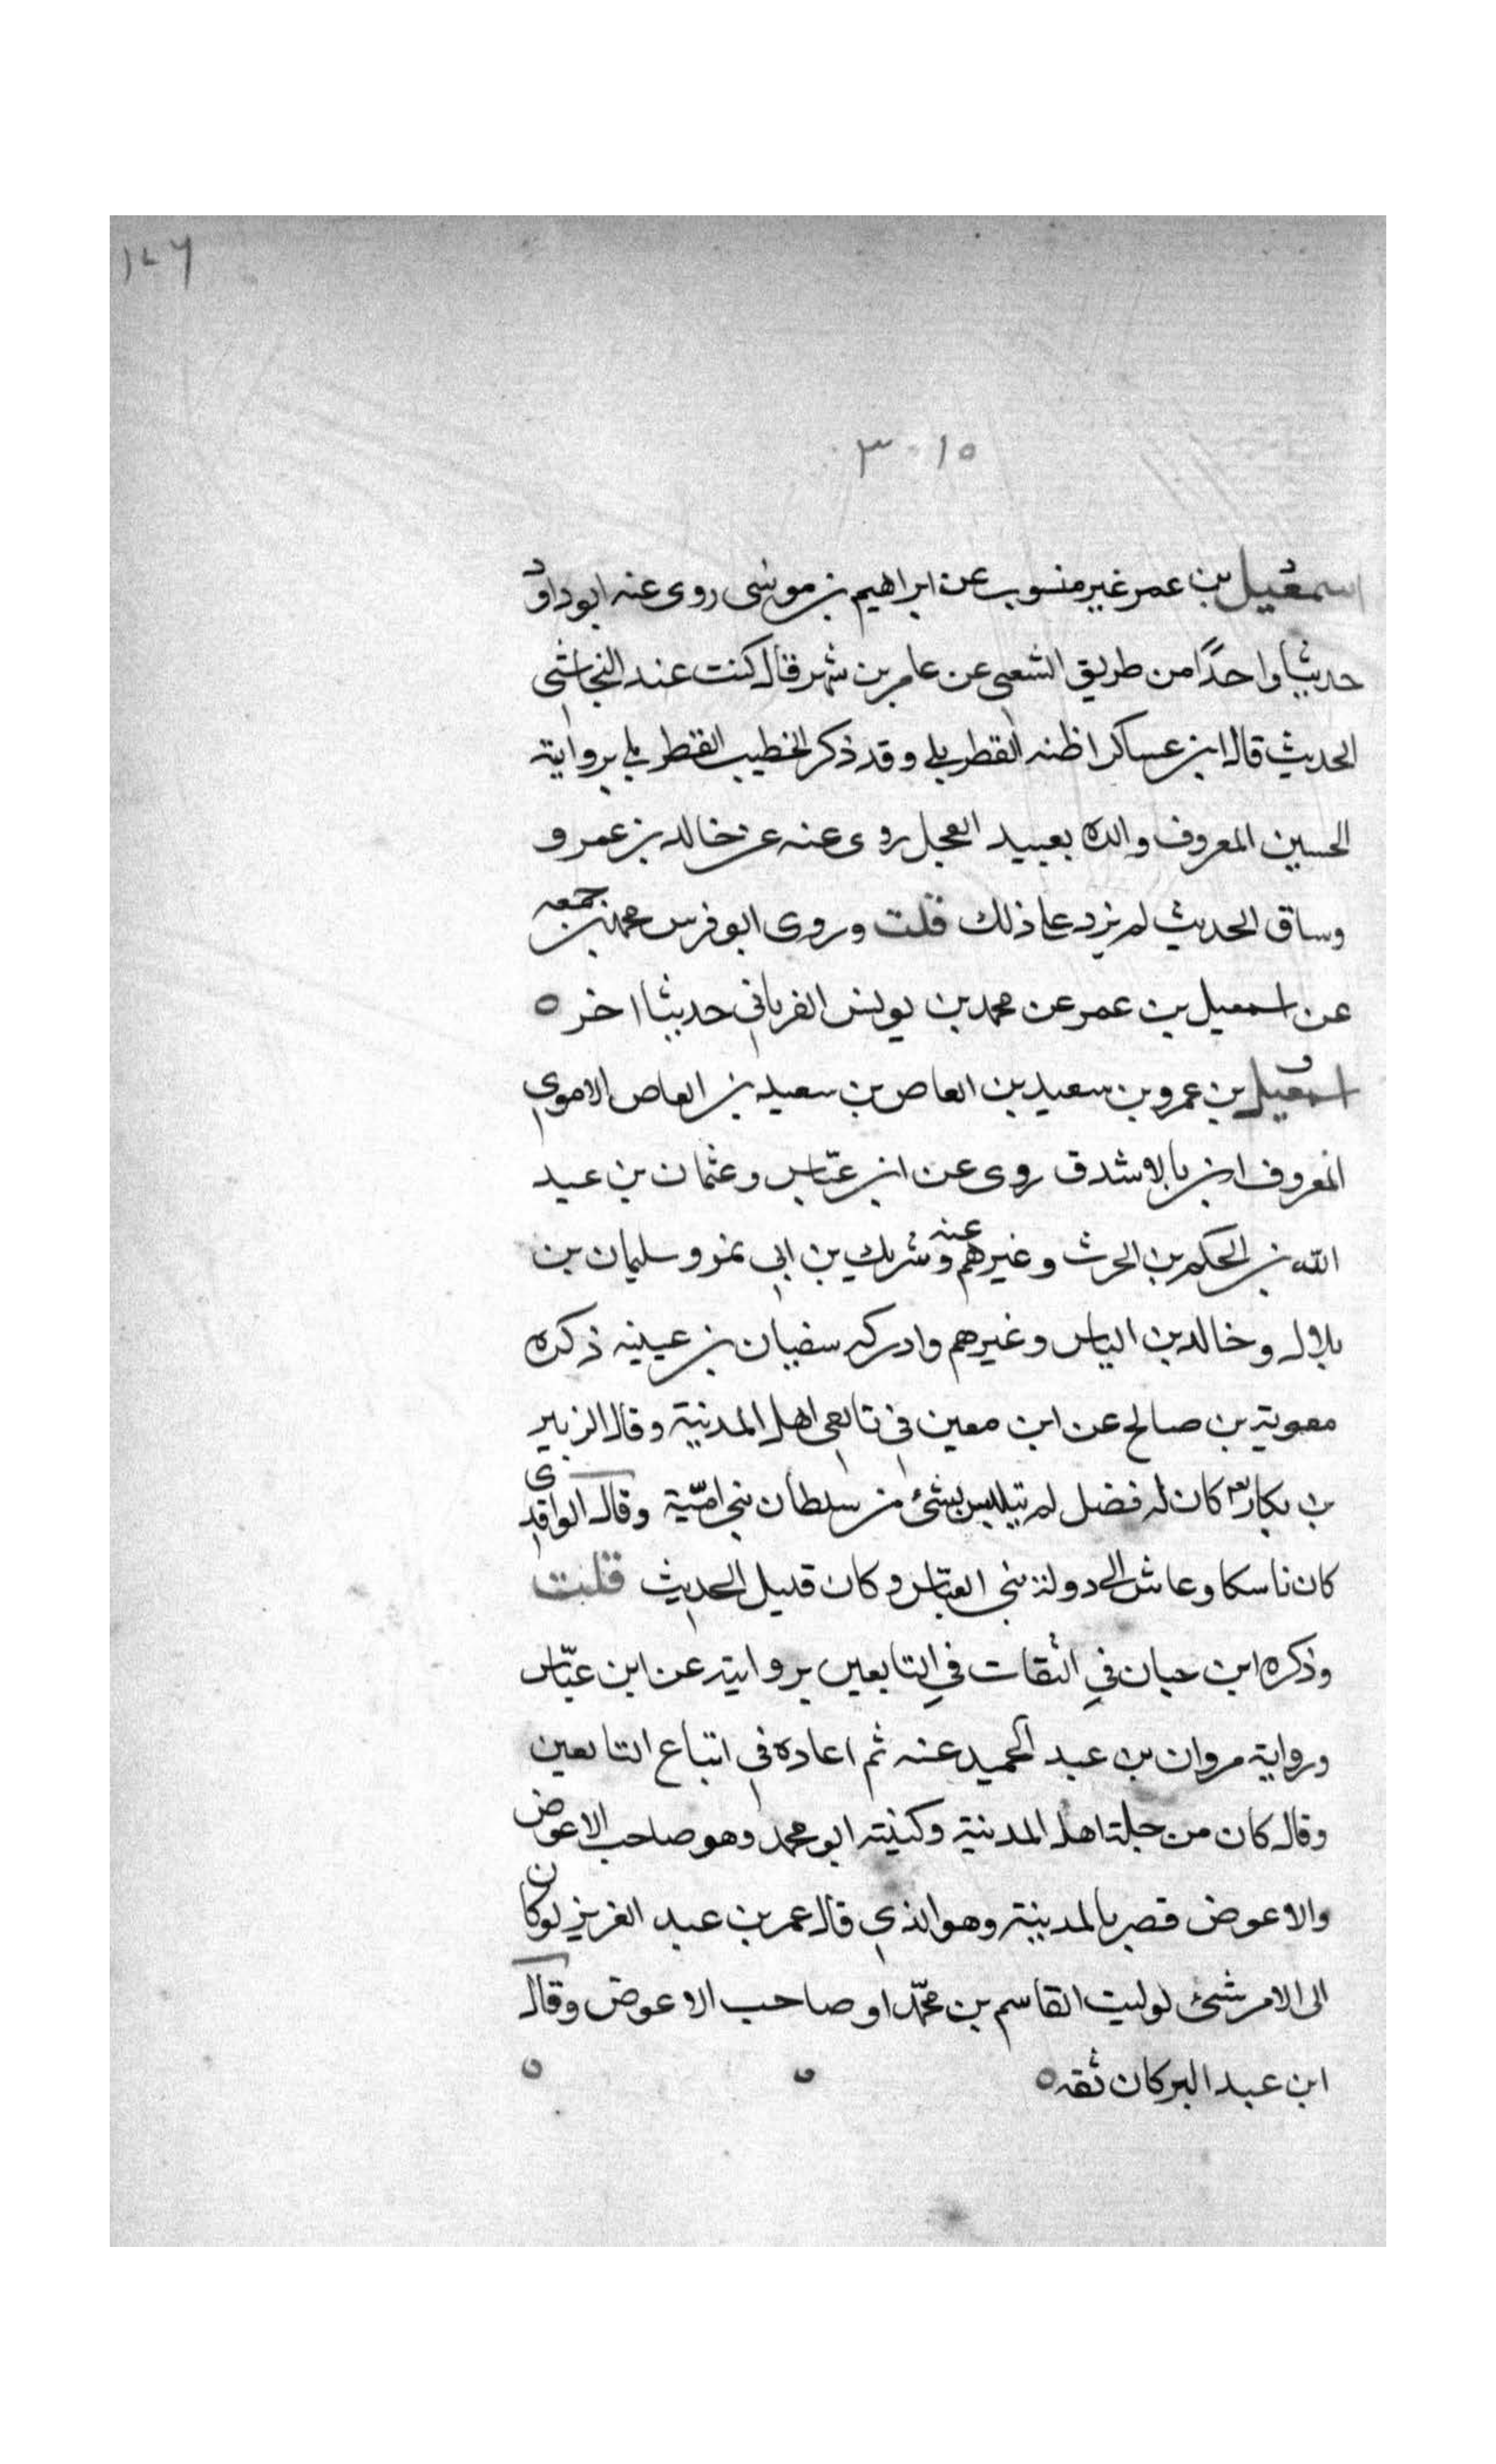 ١٤٦
٣٠١٥
اسمعيل بن عمر غير منسوب عن ابراهيم بن موسى روى عنه ابو داود
حديثا واحدًا من طريق الشعبي عن عامر بن شهر قال كنت عند النجاشي
الحديث قال ابن عساكر اظنه القطربلي وقد ذكر الخطيب القطربلي برواية
الحسين المعروف والده بعبيد العجل روى عنه عن خالد بن عمرو
وساق الحديث لم يزد على ذلك قلت وروى ابو فرس محمد بن جمعه
عن اسمعيل بن عمر عن محمد بن يونس الفريابي حديثا اخر ه
اسمعيل بن عمرو بن سعيد بن العاص بن سعيد بن العاص الاموي
المعروف ابن بالاشدق روى عن ابن عبّاس وعثمان بن عبيد
الله بن الحكم بن الحرث وغيرهم وعنه شريك بن ابي نمر وسليمان بن
بلال وخالد بن الياس وغيرهم وادركه سفيان بن عيينه ذكره
معوية بن صالح عن ابن معين في تابعي اهل المدينة وقال الزبير
بن بكار كان له فضل لم يتلبس بشئ من سلطان بني اميّة وقال الواقدي
كان ناسكا وعاش الى دولة بني العبّاس وكان قليل الحديث قلت
وذكره ابن حبان في الثقات في التابعين بروايته عن ابن عبّاس
ورواية مروان بن عبد الحميد عنه ثم اعاده في اتباع التابعين
وقال كان من جلة اهل المدينة وكنيته ابو محمد وهو صاحب الاعوض
والاعوض قصر بالمدينة وهو الذي قال عمر بن عبد العزيز لو كان
الى الامر شئ لوليت القاسم بن محمّد او صاحب الاعوض وقال
ابن عبد البر كان ثقه ه ه ه